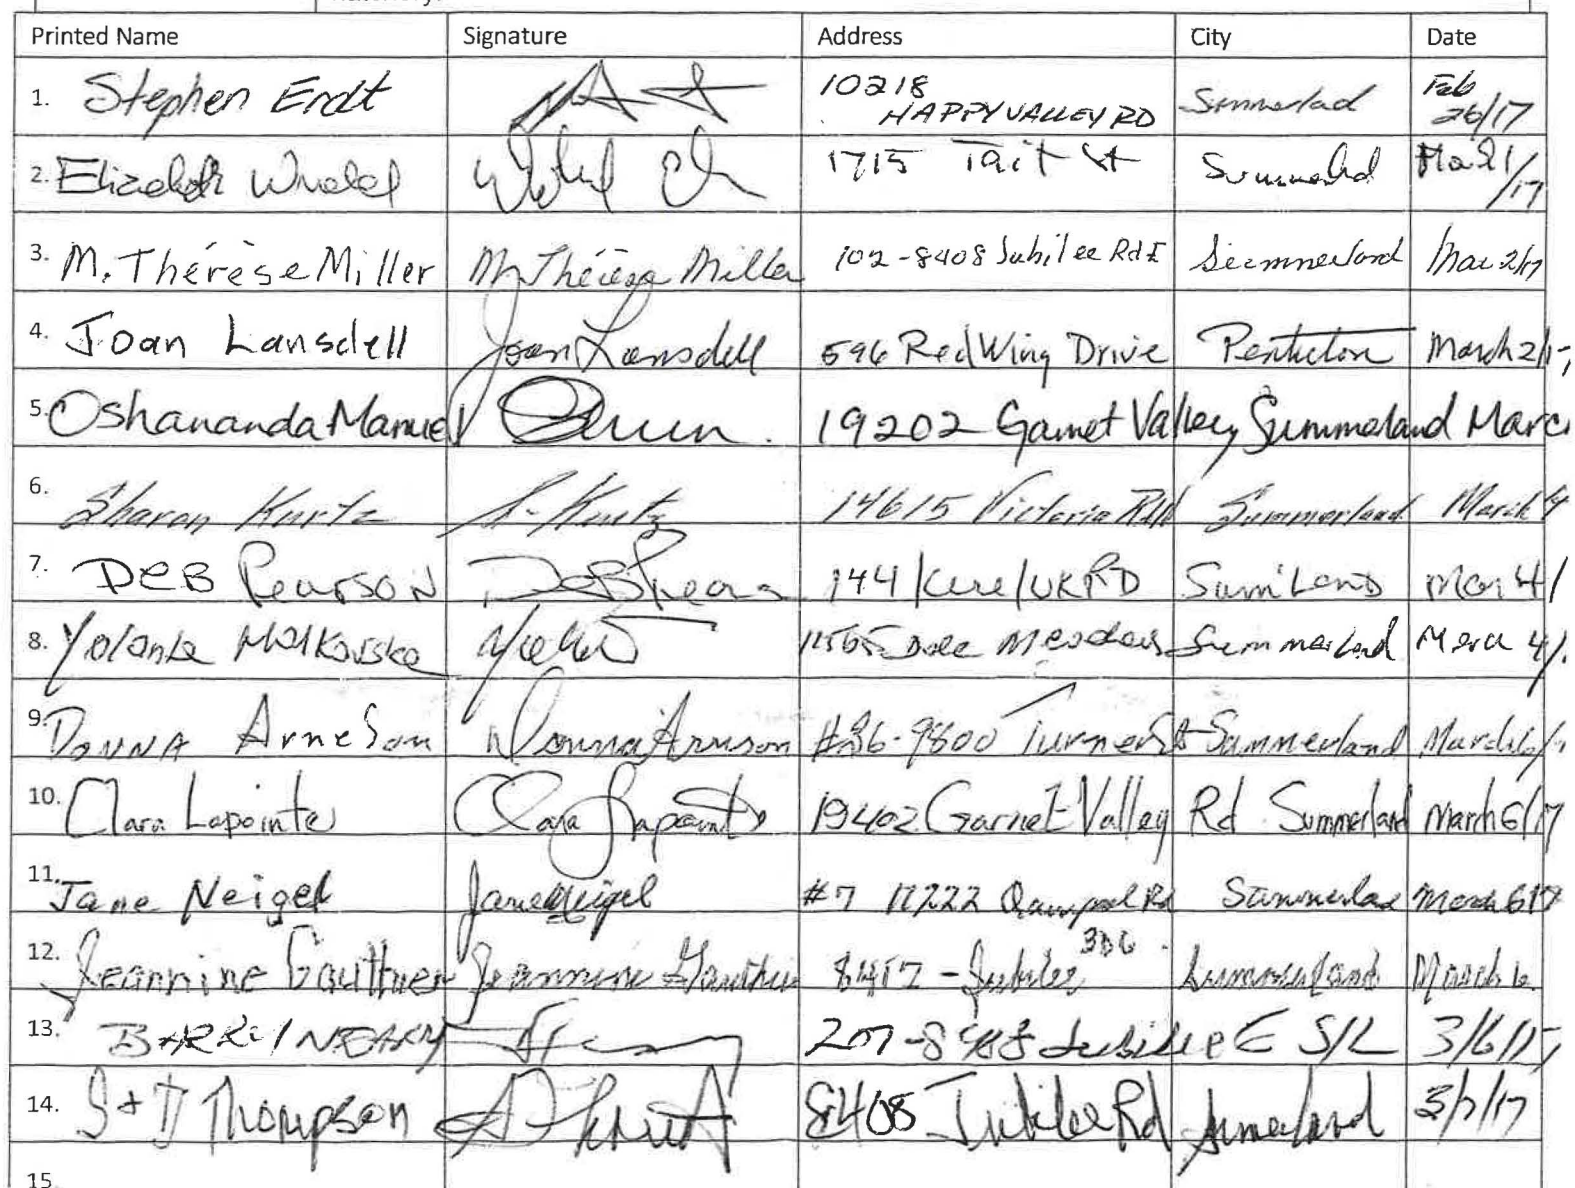 Printed Name Signature Address City Date
1. Stephen Erdt 10218 HAPPY VALLEY RD Summerlad Feb 26/17
2. Elizabeth 1715 Tait St Summerlad Mar 21/17
3. M. Thérèse Miller M Thérèse Miller 102-8408 Jubilee Rd E Summerland Mar 2/17
4. Joan Lansdell Joan Lansdell 596 Red Wing Drive Penticton March 2/17
5. Oshananda Manuel 19202 Garnet Valley Summerland Marc
6. Sharon Kurtz S. Kurtz 14615 Victoria Rd N Summerland March 4
7. DEB Pearson Deb Pears 144 RD Mar 4/
8. Yolanta 11565 Dale Meadows Summerland 4/
9. DONNA Arneson Donna Arneson #36-9800 Turner St Summerland March 6/1
10. Clara Lapointe Clara Lapointe 19402 Garnet Valley Rd Summerland March 6/17
11. Jane Neigel Jane Neigel #7 Rd Summerlad March 6 17
12. Jeannine Gauthier Jeannine Gauthier - Jubilee 306 Summerland March 6
13. BARRY NEARY 207-8408 Jubilee E S/L 3/6/17
14. S + D Thompson 8408 Jubilee Rd Summerland 3/7/17
15.